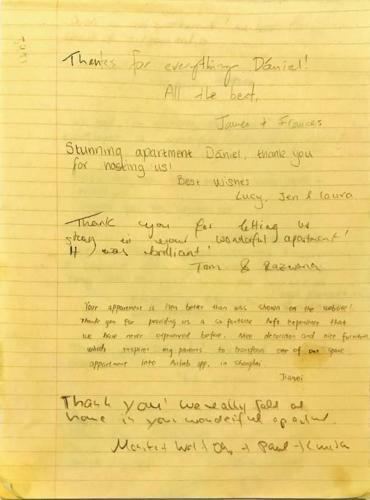 Thanks for everything Daniel!
All the best,
James & Frances
Stunning apartment Daniel, thank you
for hosting us!
Best wishes
Lucy, Jen & Laura
Thank you for letting us
stay in your wonderful apartment!
It was brilliant!
Tom & Razwana
Your appartment is even better than was shown on the website!
Thank you for providing us a comfortable Airb experience that
we have never experienced before. Nice decoration and nice furniture
which inspire my parents to transform one of our spare
appartment into Airbnb app. in Shanghai
Jiawei
Thank you! We really felt at
home in your wonderful apartment.
+ Paul +